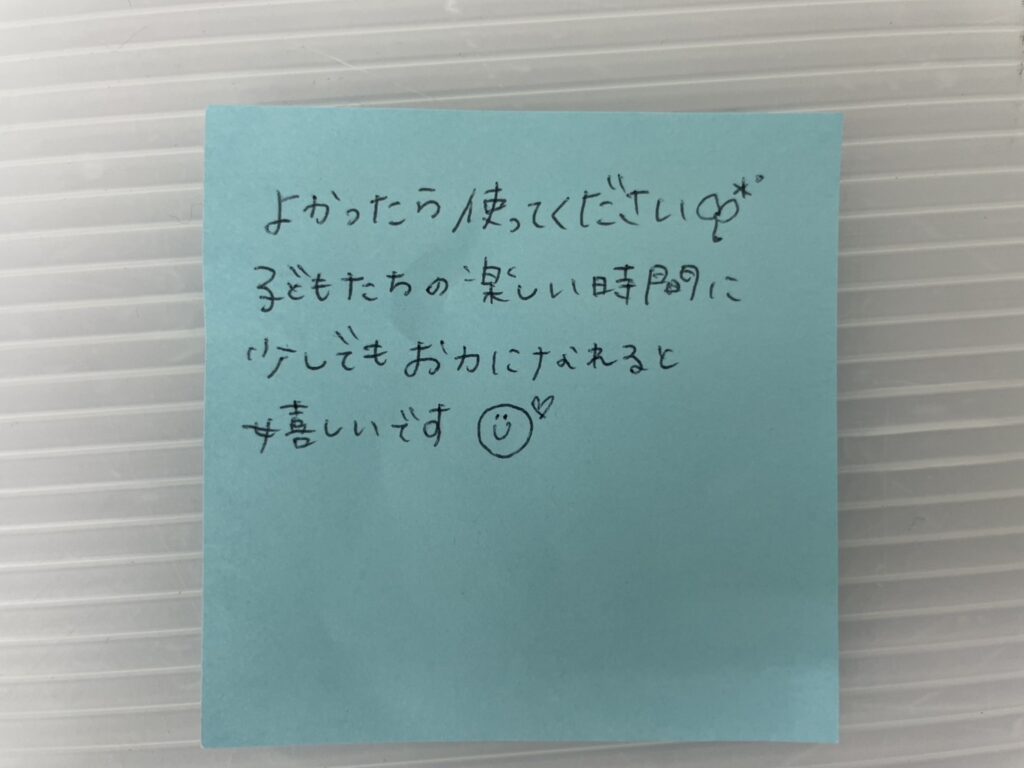 よかったら使ってください
子どもたちの楽しい時間に
少しでもお力になれると
嬉しいです